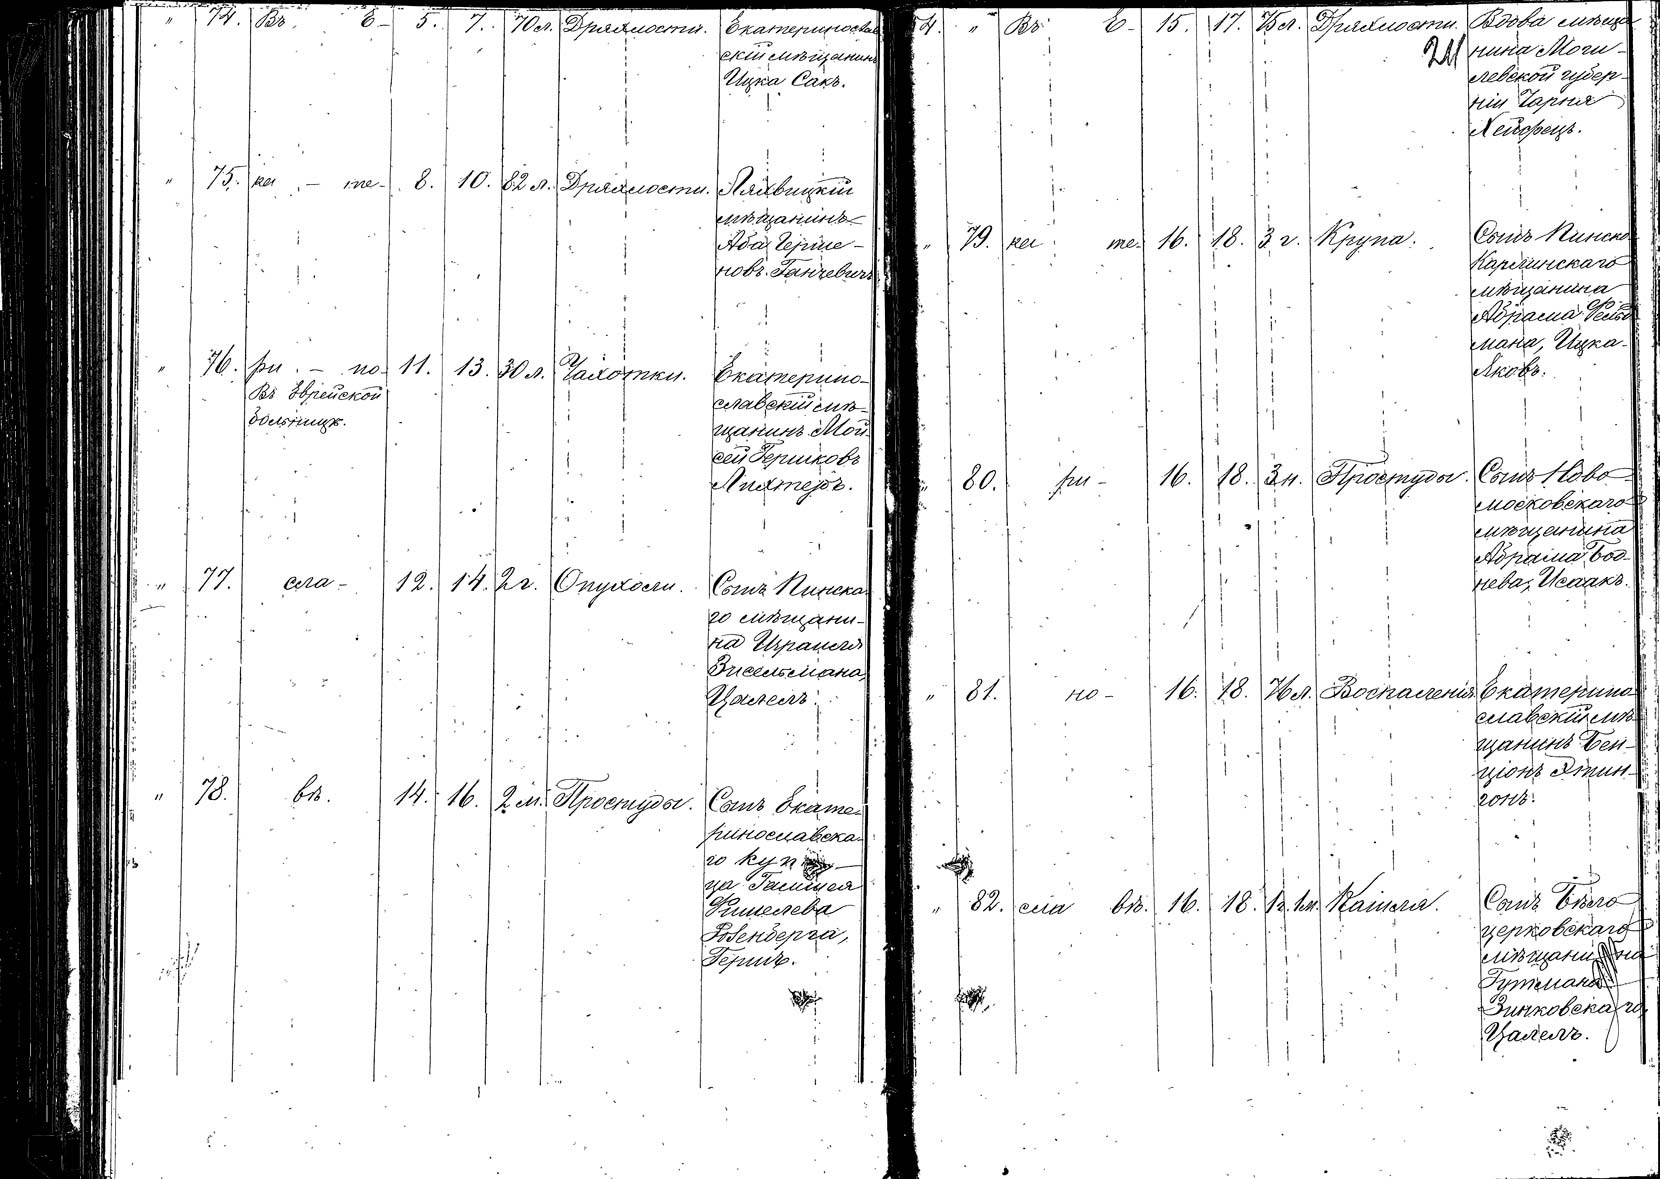 " 74. Въ Е- 5. 7. 70 л. Дряхлости. Екатеринослав
скій мѣщанинъ
Ицка Сакъ.
" 75. ка - те- 8. 10. 82 л. Дряхлости. Ляхвицкій
мѣщанинъ
Аба Герше-
новъ Ганчевичъ
" 76. ри - но- 11. 13. 30 л. Чахотки. Екатерино-
Въ Еврейской
больницѣ.
славскій мѣ-
щанинъ Мой-
сей Гершковъ
Лихтеръ.
" 77. сла- 12. 14. 2 г. Опухоли. Сынъ Пинска-
го мѣщани-
на Израиля
Зисельмана,
Цалелъ.
" 78. вѣ. 14. 16. 2 м. Простуды. Сынъ Екате-
ринославска-
го куп-
ца
Фишелева
Розенберга,
Гершъ.
54. " Въ Е- 15. 17. 75 л. Дряхлости. Вдова мѣща
нина Моги-
левской губер-
ніи Чарня
Хейфецъ.
" 79. ка те- 16. 18. 3 г. Крупа. Сынъ Пинско-
Карлинскаго
мѣщанина
Абрама Фельд
мана, Ицка-
Яковъ.
" 80. ри- 16. 18. 3 н. Простуды. Сынъ Ново-
московскаго
мѣщанина
Абрама Бод-
нева, Исаакъ.
" 81. но- 16. 18. 76 л. Воспаленія. Екатерино
славскій мѣ-
щанинъ Бен-
ціонъ Этин-
гонъ.
" 82. сла вѣ. 16. 18. 1 г. 1 м. Кашля. Сынъ Бѣло
церковскаго
мѣщанина
Гутмана
Зинковскаго,
Цалелъ.